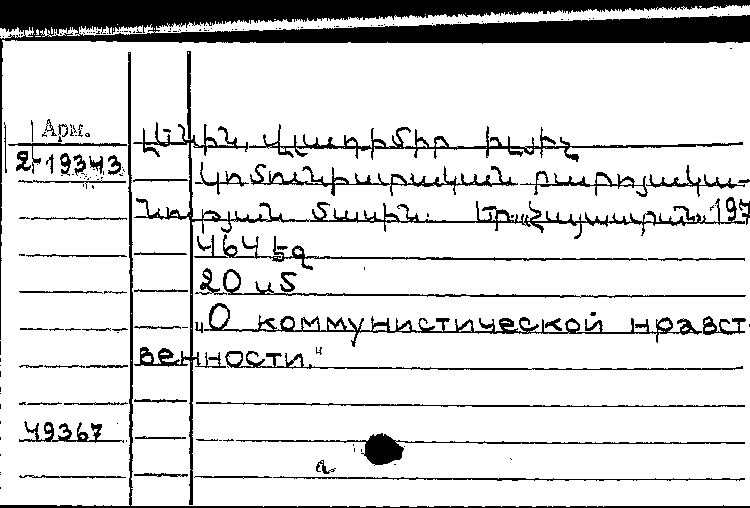 Арм.
2-19343
Լենին, Վլադիմիր Իլյիչ
Կոմունիստական բարոյակա-
նության մասին. Եր., „Հայաստան" 197
464 էջ
20 սմ
„О коммунистической нравст-
венности."
49367